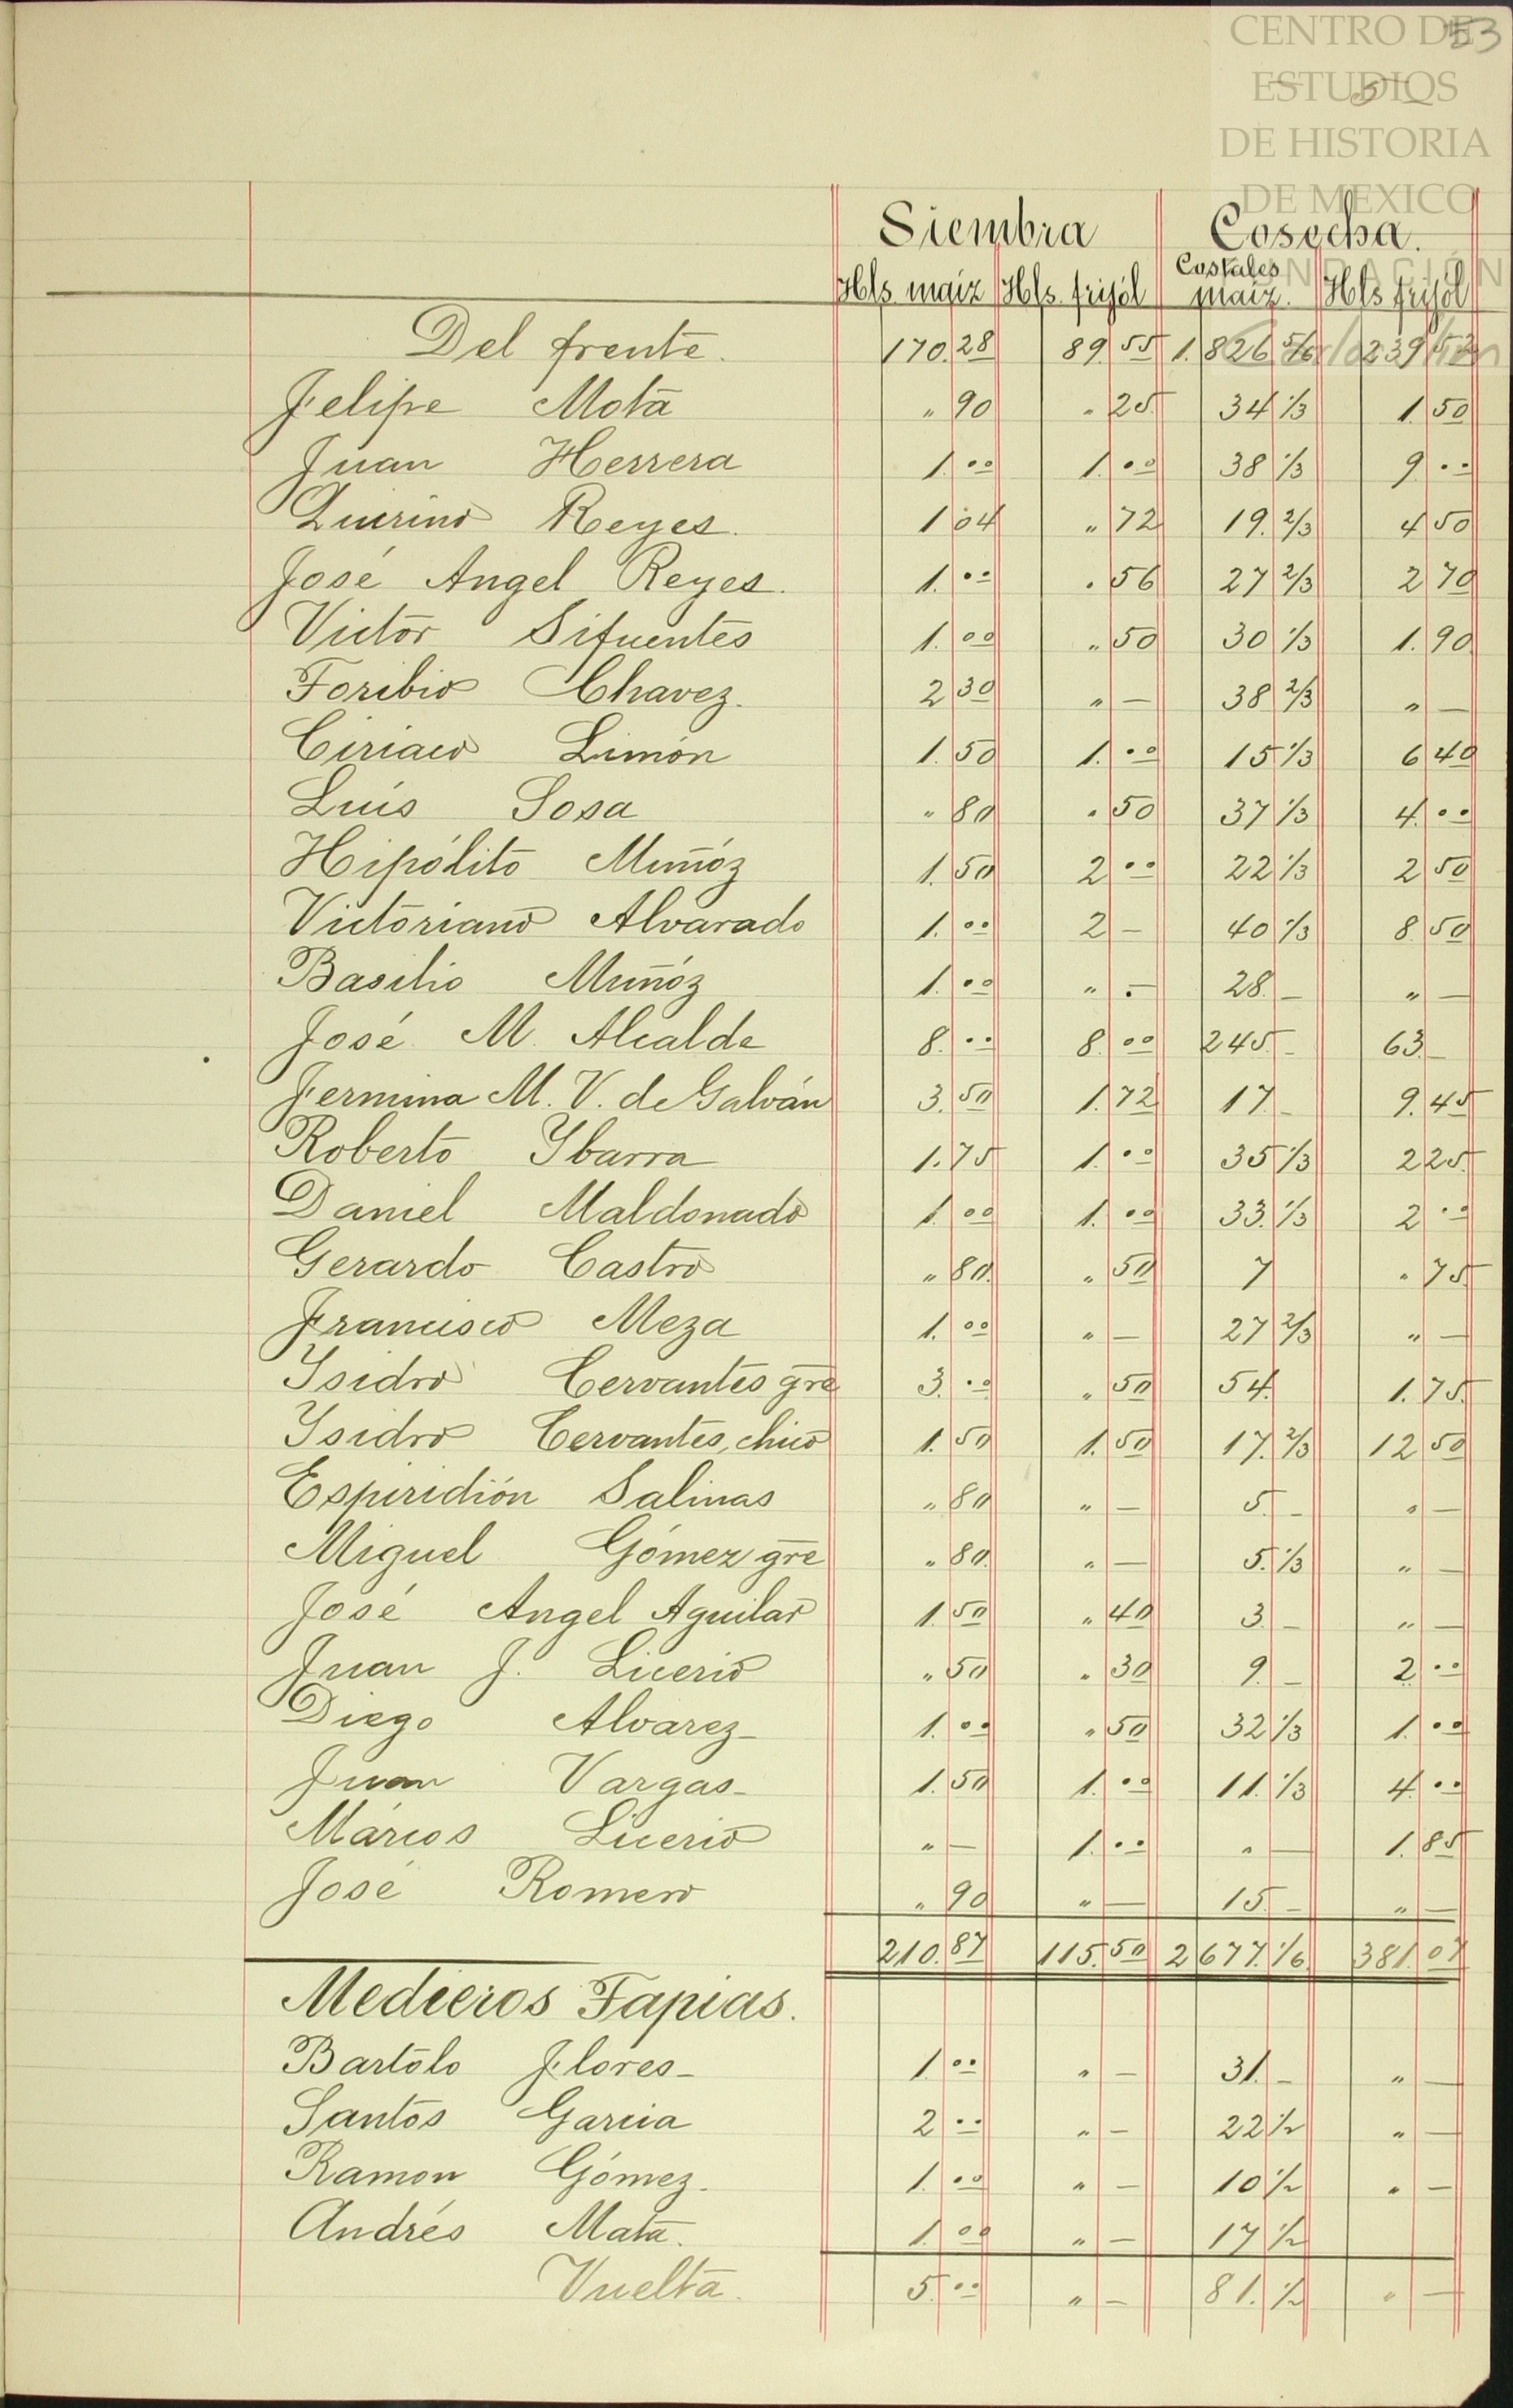 CENTRO DE
53
ESTUDIOS
5
DE HISTORIA
DE MEXICO
Siembra Cosecha.
Hls. maíz Hls. frijól Costales maíz. Hls frijól
Del frente. 170.28 89.55 1.826 5/6 239 52
Felipe Mota " 90 " 25 34 1/3 1.50
Juan Herrera 1.00 1.00 38 1/3 9 00
Quirino Reyes. 1 04 " 72 19. 2/3 4 50
José Angel Reyes. 1.00 " 56 27 2/3 2 70
Victor Sifuentes 1.00 " 50 30 1/3 1.90
Toribio Chavez. 2 30 " — 38 2/3 " —
Ciriaco Limón 1.50 1.00 15 1/3 6 40
Luís Sosa " 80 " 50 37 1/3 4.00
Hipólito Muñóz 1.50 2 00 22 1/3 2 50
Victoriano Alvarado 1.00 2 — 40 1/3 8 50
Basilio Muñóz 1.00 " — 28. — " —
José M. Alcalde 8.00 8.00 245. — 63 —
Fermina M. V. de Galván 3.50 1.72 17. — 9.45
Roberto Ybarra 1.75 1.00 35 1/3 2 25
Daniel Maldonado 1.00 1.00 33. 1/3 2 00
Gerardo Castro " 80. " 50 7 " 75.
Francisco Meza 1.00 " — 27 2/3 " —
Ysidro Cervantes gre 3.00 " 50 54. 1.75.
Ysidro Cervantes, chico 1.50 1.50 17. 2/3 12 50
Espiridión Salinas " 80 " — 5. — " —
Miguel Gómez gre " 80. " — 5. 1/3 " —
José Angel Aguilar 1.50 " 40 3. — " —
Juan J. Licerio " 50 " 30 9. — 2.00
Diego Alvarez 1.00 " 50 32 1/3 1.00
Juan Vargas 1.50 1.00 11. 1/3 4.00
Márcos Licerio " — 1.00 " — 1.85
José Romero " 90 " — 15. — " —
210.87 115.50 2 677. 1/6 381.07
Medieros Tapias.
Bartolo Flores 1.00 " — 31. — " —
Santos Garcia 2 00 " — 22 1/2 " —
Ramon Gómez. 1.00 " — 10 1/2 " —
Andrés Mata. 1.00 " — 17 1/2
Vuelta. 5.00 " — 81. 1/2 " —